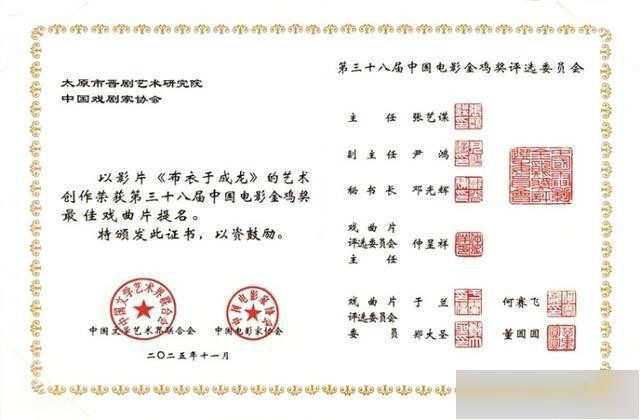 太原市晋剧艺术研究院
中国戏剧家协会
以影片《布衣于成龙》的艺术
创作荣获第三十八届中国电影金鸡奖
最佳戏曲片提名。
特颁发此证书，以资鼓励。
中国文学艺术界联合会
中国电影家协会
中国文学艺术界联合会
中国电影家协会
二〇二五年十一月
第三十八届中国电影金鸡奖评选委员会
主任 张艺谋
副主任 尹鸿
秘书长 邓光辉
戏曲片
评选委员会 仲呈祥
主任
戏曲片 于兰 何赛飞
评选委员会
委员 郑大圣 董圆圆